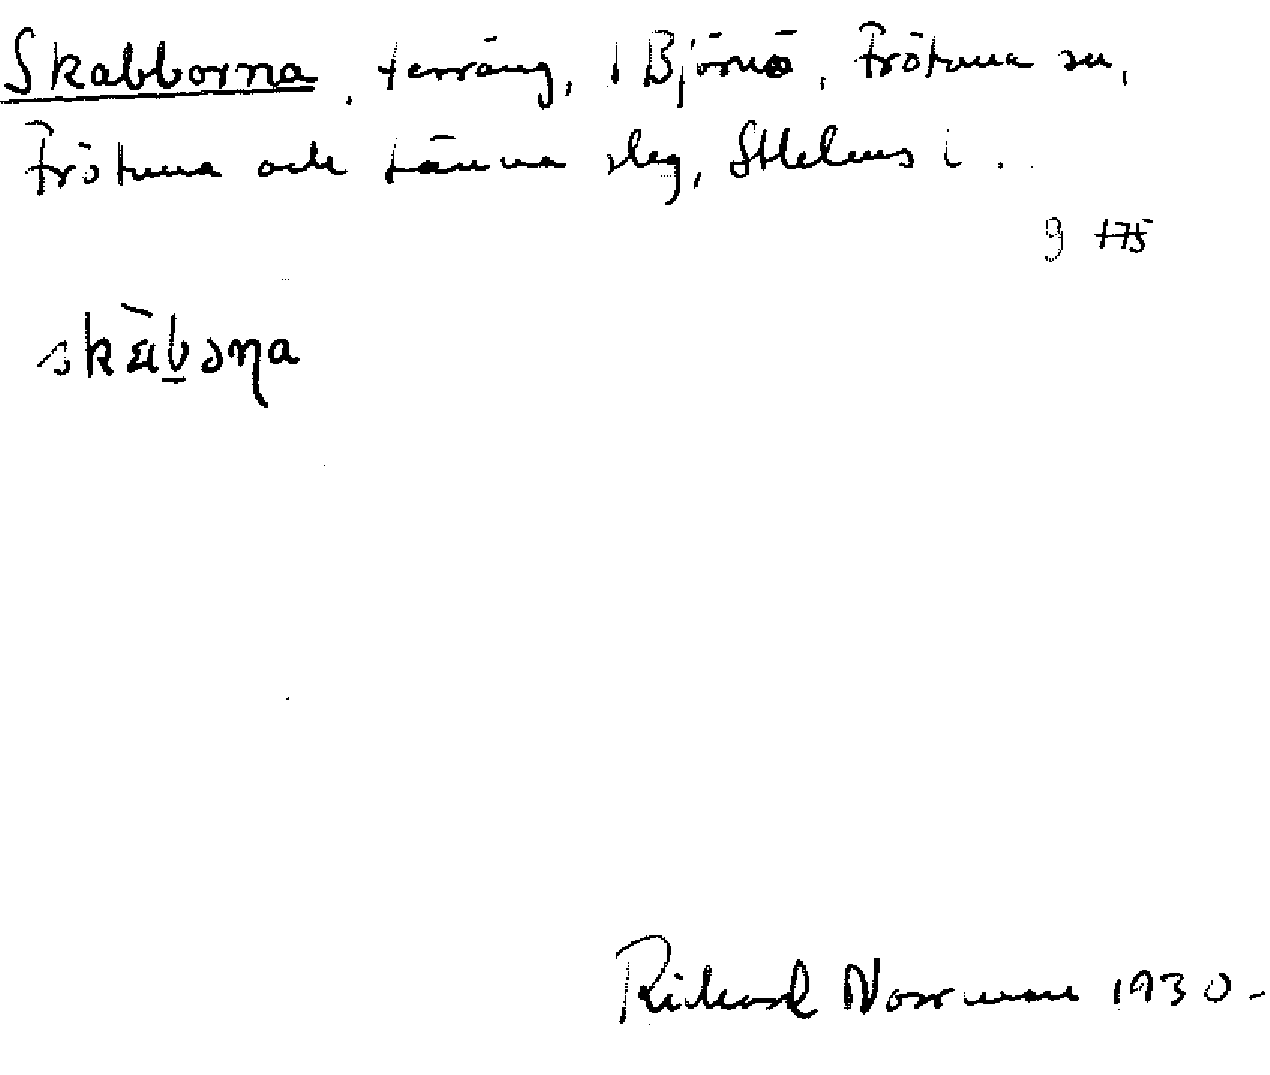 Skabborna, terräng, i Björnö, Frötuna sn,
Frötuna och Länna slag, Sthlms l.
9 175
skàb̲əηa
Richard Norrman 1930.